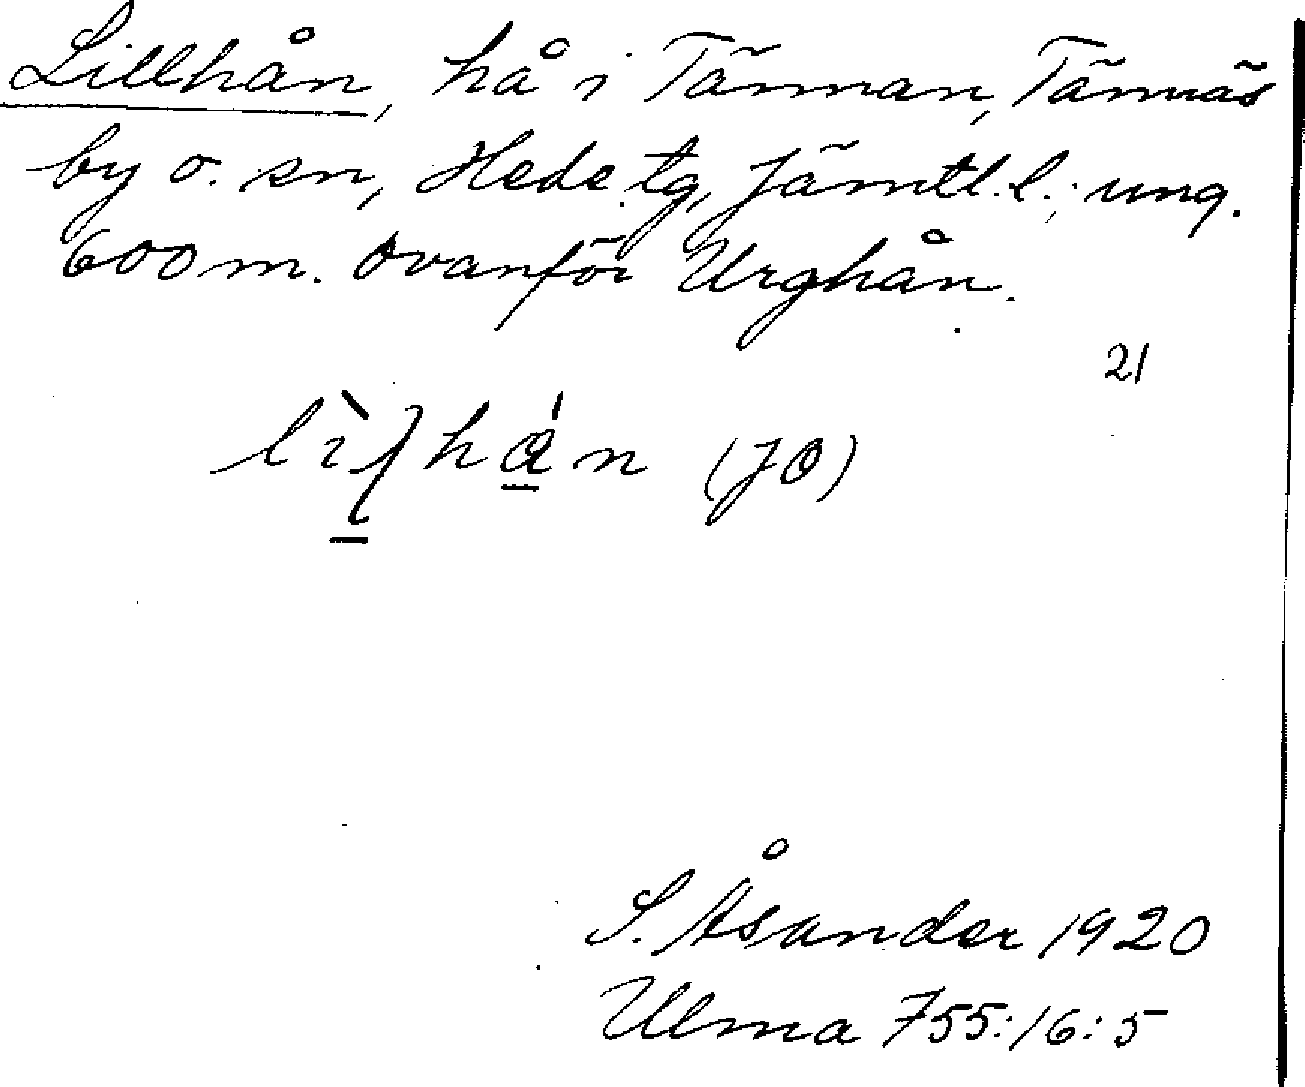 Lillhån, hå i Tännan, Tännäs
by o. sn, Hede tg, Jämtl. l.; ung.
600 m. ovanför Urghån.
21
(JO)
S. Åsander 1920
Ulma 755:16:5